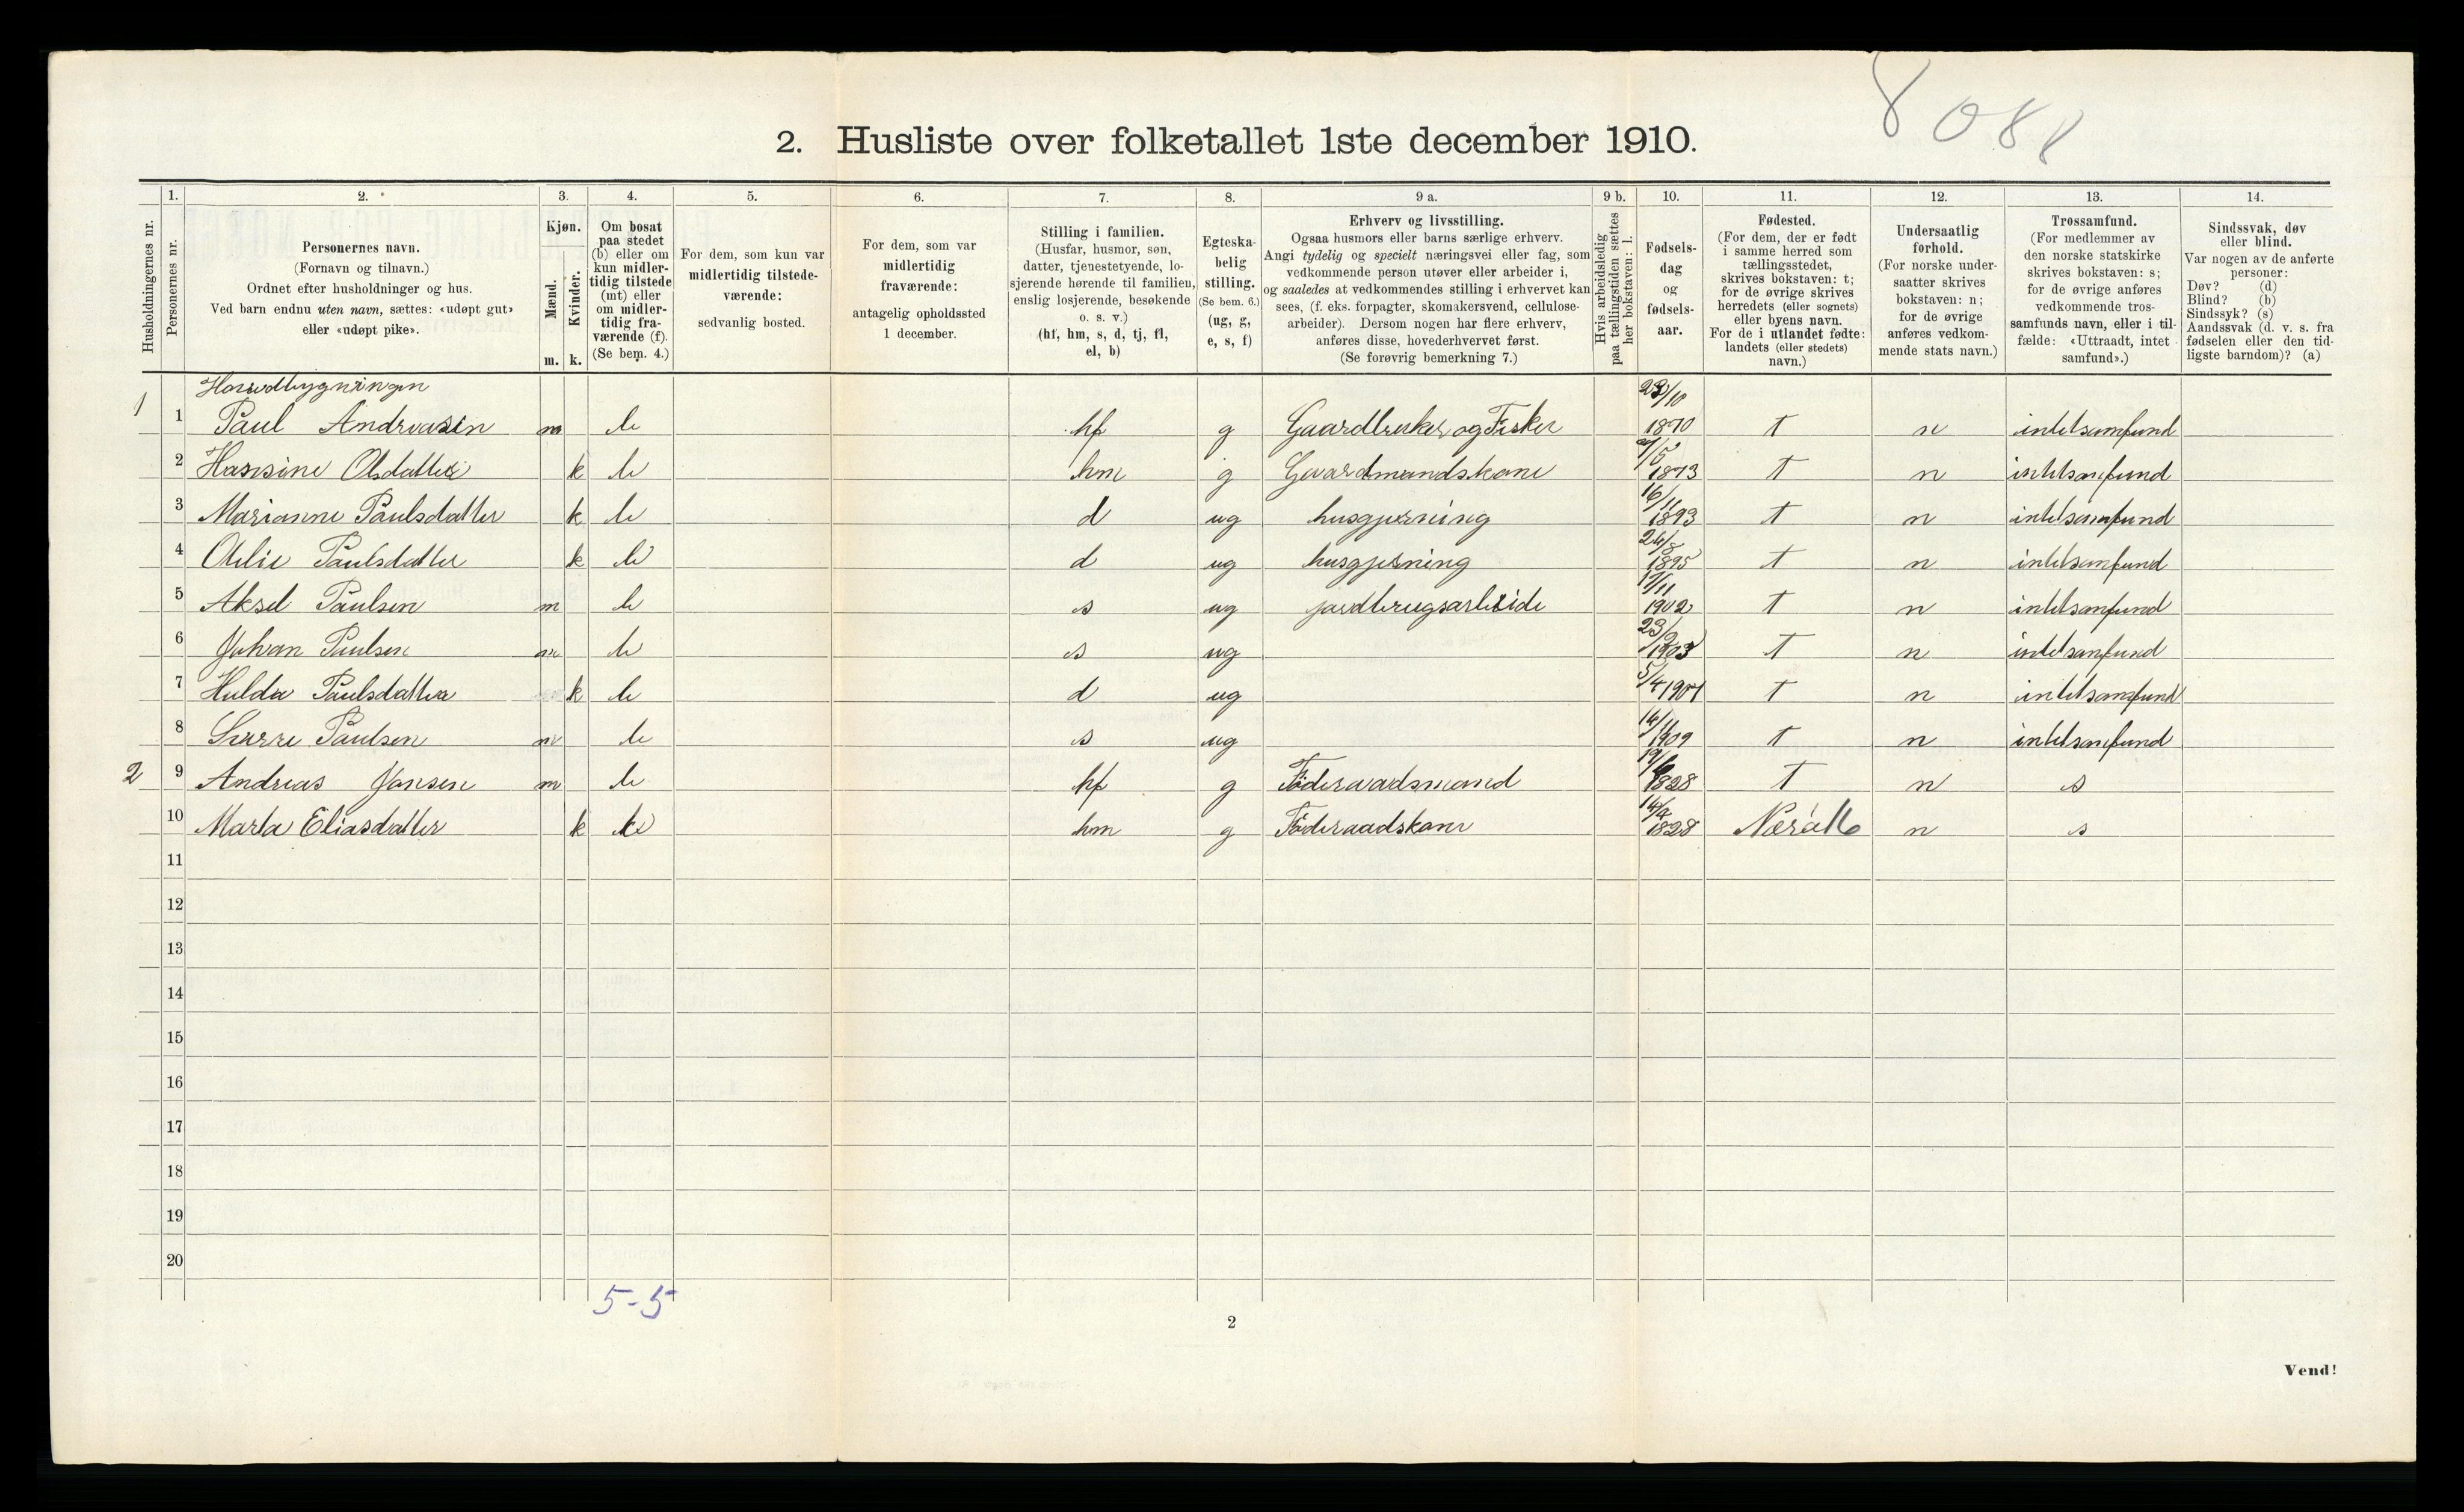 8 0 8 8
2. Husliste over folketallet 1ste december 1910.
Husholdningernes nr.
1.
Personernes nr.
2.
Personernes navn.
(Fornavn og tilnavn.)
Ordnet efter husholdninger og hus.
Ved barn endnu uten navn, sættes: «udøpt gut»
eller «udøpt pike».
3.
Kjøn.
Mænd.
m.
Kvinder.
k.
4.
Om bosat
paa stedet
(b) eller om
kun midler-
tidig tilstede
(mt) eller
om midler-
tidig fra-
værende (f).
(Se bem. 4.)
5.
For dem, som kun var
midlertidig tilstede-
værende:
sedvanlig bosted.
6.
For dem, som var
midlertidig
fraværende:
antagelig opholdssted
1 december.
7.
Stilling i familien.
(Husfar, husmor, søn,
datter, tjenestetyende, lo-
sjerende hørende til familien,
enslig losjerende, besøkende
o. s. v.)
(hf, hm, s, d, tj, fl,
el, b)
8.
Egteska-
belig
stilling.
(Se bem. 6.)
(ug, g,
e, s, f)
9 a.
Erhverv og livsstilling.
Ogsaa husmors eller barns særlige erhverv.
Angi tydelig og specielt næringsvei eller fag, som
vedkommende person utøver eller arbeider i,
og saaledes at vedkommendes stilling i erhvervet kan
sees, (f. eks. forpagter, skomakersvend, cellulose-
arbeider). Dersom nogen har flere erhverv,
anføres disse, hovederhvervet først.
(Se forøvrig bemerkning 7.)
9 b.
Hvis arbeidsledig
paa tællingstiden sættes
her bokstaven: l.
10.
Fødsels-
dag
og
fødsels-
aar.
11.
Fødested.
(For dem, der er født
i samme herred som
tællingsstedet,
skrives bokstaven: t;
for de øvrige skrives
herredets (eller sognets)
eller byens navn.
For de i utlandet fødte:
landets (eller stedets)
navn.)
12.
Undersaatlig
forhold.
(For norske under-
saatter skrives
bokstaven: n;
for de øvrige
anføres vedkom-
mende stats navn.)
13.
Trossamfund.
(For medlemmer av
den norske statskirke
skrives bokstaven: s;
for de øvrige anføres
vedkommende tros-
samfunds navn, eller i til-
fælde: «Uttraadt, intet
samfund».)
14.
Sindssvak, døv
eller blind.
Var nogen av de anførte
personer:
Døv? (d)
Blind? (b)
Sindssyk? (s)
Aandssvak (d. v. s. fra
fødselen eller den tid-
ligste barndom)? (a)
Hovedbygningen
1 1 Paul Andreasen m b hf g Gaardbruker og Fisker /10 1870 t n intetsamfund
2 Hansine Olsdatter k b hm g Gaardmandskone /5 1873 t n intetsamfund
3 Marianne Paulsdatter k b d ug husgjerning 16/11 1893 t n intetsamfund
4 Otelie Paulsdatter k b d ug husgjerning 24/8 1895 t n intetsamfund
5 Aksel Paulsen m b s ug jordbrugsarbeide 17/11 1902 t n intetsamfund
6 Johan Paulsen m b s ug 23/9 1903 t n intetsamfund
7 Hulda Paulsdatter k b d ug 5/4 1907 t n intetsamfund
8 Sverre Paulsen m b s ug 14/11 1909 t n intetsamfund
2 9 Andreas Jansen m b hf g Föderaadsmand 19/ 1828 t n s
10 Marta Eliasdatter k b hm g Föderaadskone 14/4 1828 n s
11
12
13
14
15
16
17
18
19
20
5-5
2
Vend!